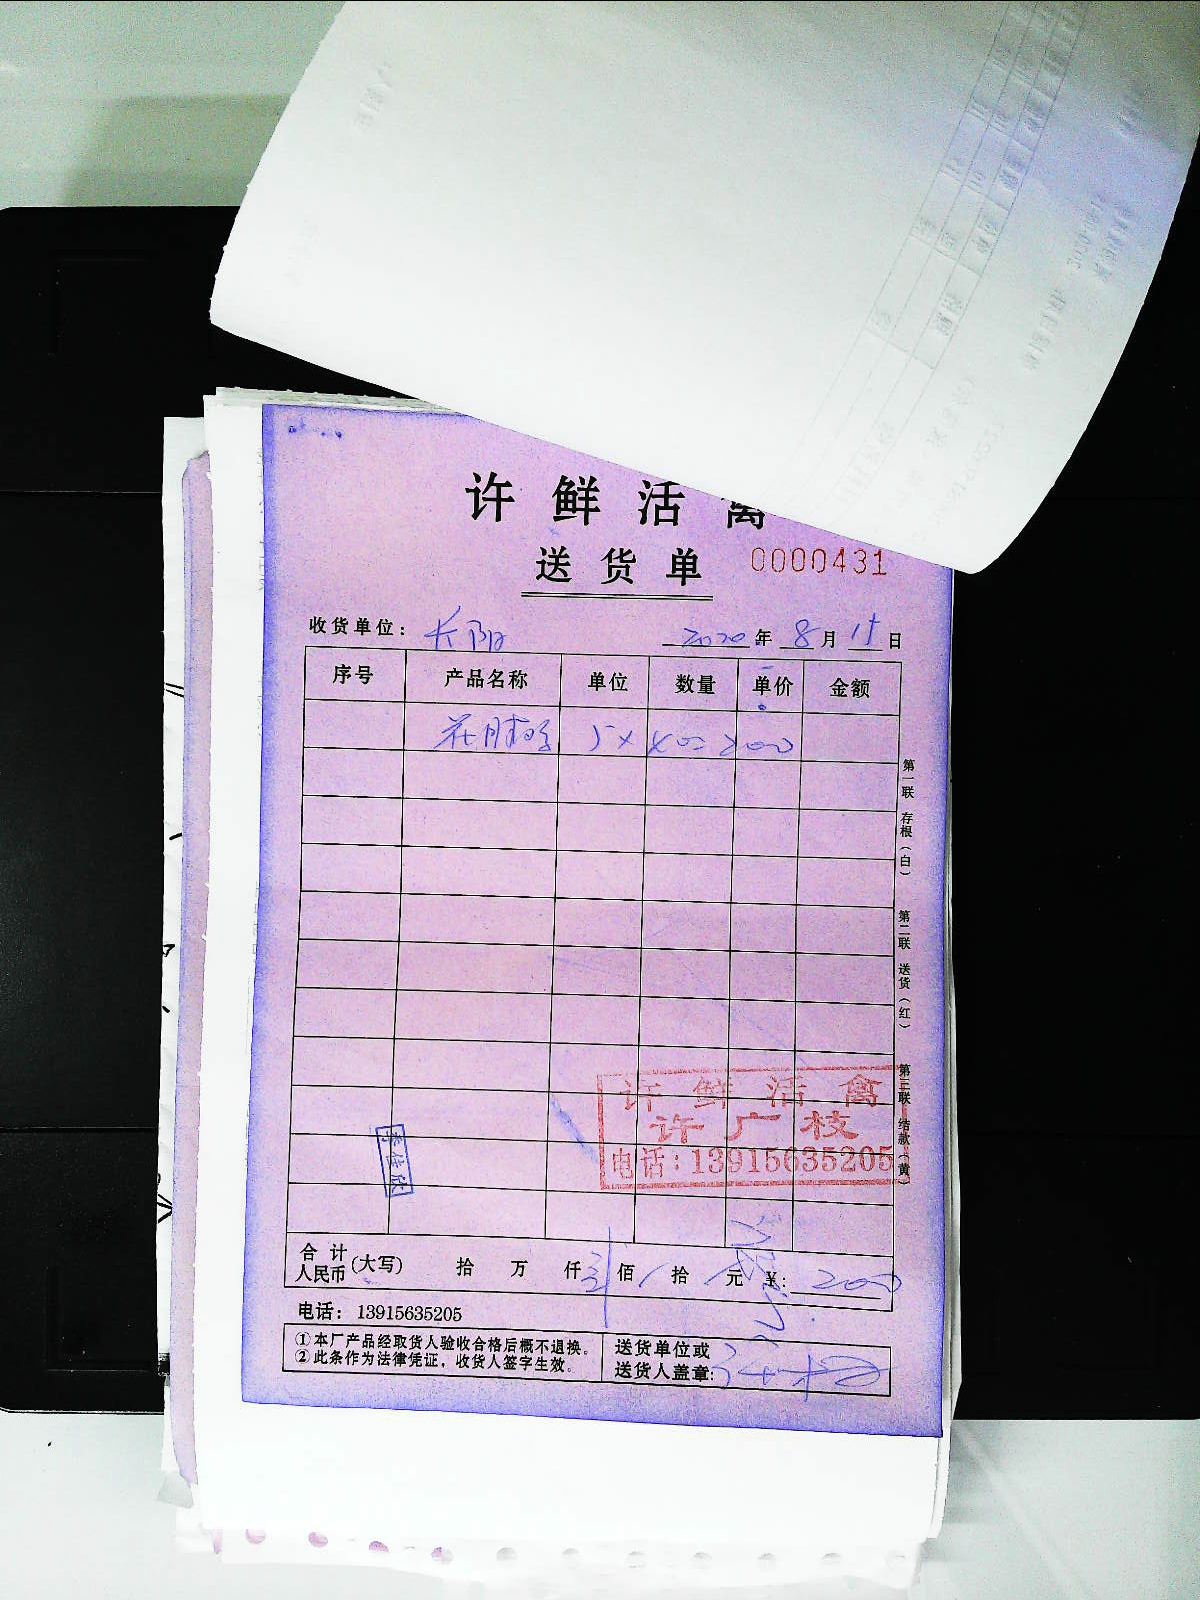 许鲜活禽
送货单 0000431
收货单位: 长阳 2020年8月15日
序号 产品名称 单位 数量 单价 金额
5× 200
第一联 存根(白) 第二联 送货(红) 第三联 结款(黄)
许鲜活禽
许广枝
电话:13915635205
李佳欣
合计人民币(大写) 拾 万 仟 佰 拾 元 ¥: 200
电话: 13915635205
①本厂产品经取货人验收合格后概不退换。
②此条作为法律凭证,收货人签字生效。
送货单位或
送货人盖章: